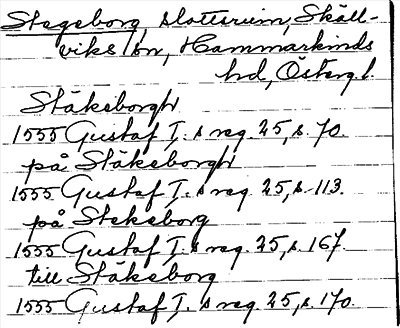 Stegeborg slottsruin, Skäll-
viks sn, Hammarkinds
hd, Östergl.
Stäkeborgh
1555 Gustaf I.s reg. 25, s. 70.
på Stäkeborgh
1555 Gustaf I.s reg. 25, s. 113.
på Stekeborg
1555 Gustaf I.s reg. 25, s. 167.
till Stäkeborg
1555 Gustaf I.s reg. 25, s. 170.